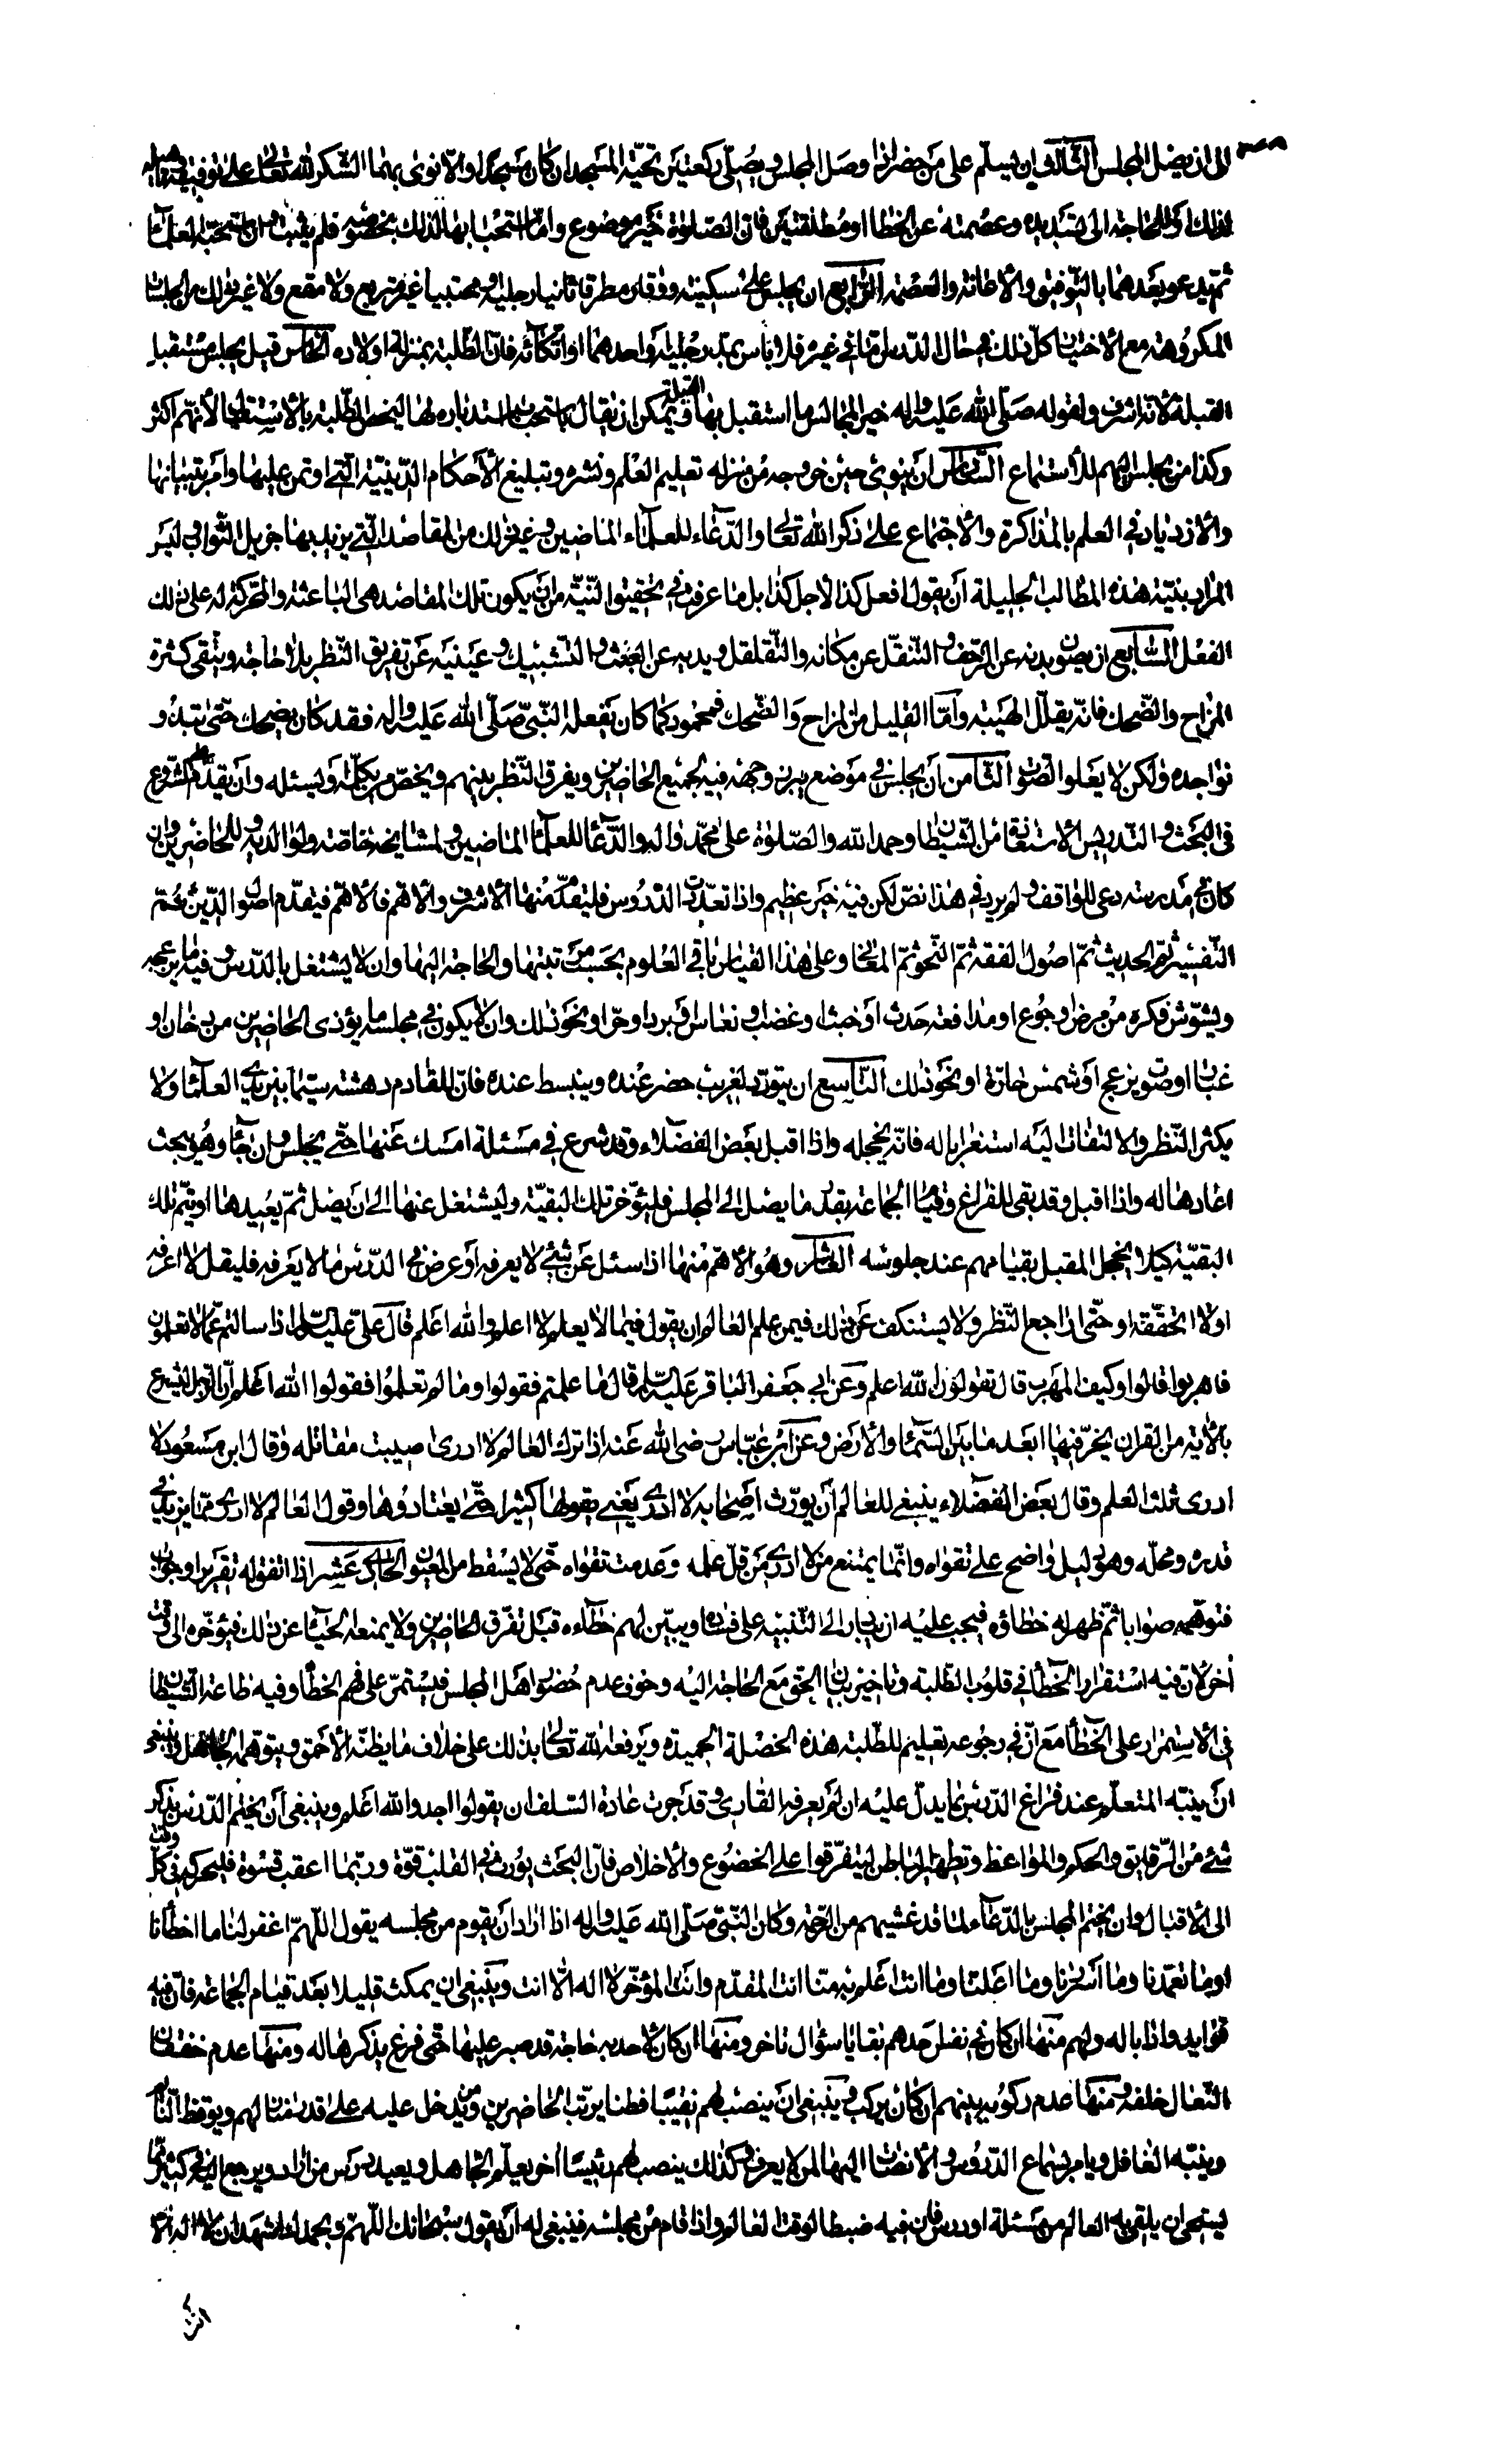 الى ان يصل المجلس الثالث ان يسلم على من حضر اذا وصل المجلس ويصلى ركعتين تحيّة المسجد ان كان مسجدا والّا نوى بهما الشكر لله تعالى على توفيقه
لذلك او للحاجة الى تسديده وعصمته عن الخطاء او مطلقتين فان الصّلوة خير موضوع وامّا استحبابها لذلك بخصوصه فلم يثبت وان استحبّه بعض العلماء
ثم يدعو بعدهما بالتوفيق والاعانة والعصمة الرّابع ان يجلس على سكينة ووقار مطرقا ثانيا رجليه او محتبيا غير متربع ولا مقع ولا غير ذلك من الجلسات
المكروهة مع الاختيار كلّ ذلك في حال الدرس امّا في غيره فلا باس بمدّ رجليه او احدهما او اتكائه فانّ الطلبة بمنزلة اولاده الخامس قيل يجلس مستقبل
القبلة لانّه اشرف ولقوله صلّى الله عليه واله خير المجالس ما استقبل بها القبلة ويمكن ان يقال باستحباب استدباره لها ليخصّ الطّلبة بالاستقبال لانّهم اكثر
وكذا من يجلس اليهم للاستماع السّادس ان ينوى حين خروجه من منزله تعليم العلم ونشره وتبليغ الاحكام الدّينيّة الّتي اؤتمن عليها وامر ببيانها
والازدياد في العلم بالمذاكرة والاجتماع على ذكر الله تعالى والدّعاء للعلماء الماضين وغير ذلك من المقاصد الّتي يزيد بها جزيل الثّواب وليس
المراد بنيّة هذه المطالب الجليلة ان يقول افعل كذا لاجل كذا بل ما عرفت في تحقيق النّيّة من ان يكون تلك المقاصد هي الباعثة والمحرّكة له على ذلك
الفعل السّابع ان يصون بدنه عن الزحف والتنقّل عن مكانه والتّقلقل ويديه عن العبث والتشبيك وعينيه عن تفريق النّظر بلا حاجة ويتّقى كثرة
المزاح والضّحك فانّه يقلّل الهيبة وامّا القليل من المزاح والضّحك فمحمود كما كان يفعله النّبيّ صلّى الله عليه واله فقد كان يضحك حتّى تبدو
نواجده ولكن لا يعلو الصّوت الثّامن ان يجلس في موضع يبرز وجهه فيه لجميع الحاضرين ويفرق النّظر بينهم ويخصّ من يكلّمه او يسئله وان يقدّم على الشروع
في البحث والتدريس الاستعاذة من الشّيطان وحمد الله والصّلوة على محمّد واله والدّعاء للعلماء الماضين ولمشايخه خاصّة ولوالديه وللحاضرين وان
كان في مدرسة دعى للواقف ولم يرد في هذا نصّ لكن فيه خير عظيم واذا تعدّدت الدّروس فليقدّم منها الاشرف والاهمّ فالاهمّ فيقدّم اصول الدّين ثمّ
التّفسير ثمّ الحديث ثمّ اصول الفقه ثمّ النّحو ثمّ المعاني وعلى هذا القياس باقي العلوم بحسب مرتبتها والحاجة اليها وان لا يشتغل بالدّرس وفيه ما يزعجه
ويشوّش فكره من مرض او جوع او مدافعة حدث او خبث او غضب او نعاس او برد او حرّ او نحو ذلك وان لا يكون في مجلسه ما يؤذى الحاضرين من دخان او
غبار او صوت مزعج او شمس حارّة او نحو ذلك التّاسع ان يتودّد لغريب حضر عنده وينبسط عنده فانّ للقادم دهشة سيّما بين يدى العلماء ولا
يكثر النّظر والالتفات اليه استغرابا له فانّه يخجله واذا اقبل بعض الفضلاء وقد شرع في مسئلة امسك عنها حتّى يجلس وان جاء وهو يبحث
اعادها له واذا اقبل وقد بقى للفراغ وقيام الجماعة بقدر ما يصل الى المجلس فليؤخّر تلك البقيّة وليشتغل عنها الى ان يصل ثمّ يعيدها او يتمّ تلك
البقيّة كيلا يخجل المقبل بقيامهم عند جلوسه العاشر وهو الاهمّ منها اذا سئل عن شيء لا يعرفه او عرض في الدّرس ما لا يعرفه فليقل لا اعرفه
او لا اتحقّقه او حتّى اراجع النّظر ولا يستنكف عن ذلك فمن علم العالم ان يقول فيما لا يعلم لا اعلم والله اعلم قال على عليه السلم اذا سالتم عمّا لا تعلمون
فاهربوا قالوا وكيف المهرب قال تقولون الله اعلم وعن ابي جعفر الباقر عليه السلم قال ما علمتم فقولوا وما لم تعلموا فقولوا الله اعلم انّ الرّجل ليسرع
بالاية من القران يخرّ فيها ابعد ما بين السّماء والارض وعن ابن عبّاس رضى الله عنه اذا ترك العالم لا ادرى اصيبت مقاتله وقال ابن مسعود لا
ادرى ثلث العلم وقال بعض الفضلاء ينبغي للعالم ان يورّث اصحابه لا ادرى يعنى يقولها كثيرا حتّى يعتادوها وقول العالم لا ادرى ممّا يزيد في
قدره ومحلّه وهو دليل واضح على تقواه وانّما يمتنع من لا ادرى من قلّ علمه وعدمت تقواه حتّى لا يسقط من العيون الحادى عشر اذا اتفق له تقرير او جواب
فتوهّمه صوابا ثمّ ظهر له خطاؤه فيجب عليه ان يبادر الى التّنبيه على فساده ويبيّن لهم خطاءه قبل تفرّق الحاضرين ولا يمنعه الحياء عن ذلك فيؤخّره الى وقت
اخر لانّ فيه استقرار الخطأ في قلوب الطّلبة وتاخير بيان الحقّ مع الحاجة اليه وخوف عدم حضور اهل المجلس فيستمرّ على فهم الخطأ وفيه طاعة الشّيطان
في الاستمرار على الخطأ مع انّ في رجوعه تعليم للطّلبة هذه الخصلة الحميدة ويرفعه الله تعالى بذلك على خلاف ما يظنّه الاحمق ويتوهّمه الجاهل وينبغى
ان ينبّه المتعلّم عند فراغ الدّرس بما يدلّ عليه ان لم يعرفه القارى وقد جرت عادة السّلف ان يقولوا اجد والله اعلم وينبغى ان يختم الدّرس بذكر
شيء من الرّقايق والحكم والمواعظ وتطهير الباطن ليتفرّقوا على الخضوع والاخلاص فانّ البحث يورث في القلب قوّة وربّما اعقب قسوة فليحرّكه في كلّ وقت
الى الاقبال وان يختم المجلس بالدّعاء لما قد غشيهم من الرّحمة وكان النّبيّ صلّى الله عليه واله اذا اراد ان يقوم من مجلسه يقول اللّهمّ اغفر لنا ما اخطأنا
وما تعمّدنا وما اسررنا وما اعلنّا وما انت اعلم به منّا انت المقدّم وانت المؤخّر لا اله الّا انت وينبغى ان يمكث قليلا بعد قيام الجماعة فانّ فيه
فوايد وادابا له ولهم منها ان كان في نفس احدهم بقايا سؤال تاخر ومنها ان كان لاحد به حاجة قد صبر عليها حتّى فرغ يذكرها له ومنها عدم خفقان
النّعال خلفه ومنها عدم ركوبه بينهم ان كان يركب وينبغى ان ينصب لهم نقيبا فطنا يرتّب الحاضرين ومن يدخل عليه على قدر منازلهم ويوقظ النّائم
وينبّه الغافل ويامر بسماع الدّروس والانصات اليها لمن لا يعرف وكذلك ينصب لهم رئيسا اخر يعلّم الجاهل ويعيد درس من اراد ويرجع اليه في كثير ممّا
يستحى ان يلقى به العالم من مسئلة او درس فان فيه ضبطا لوقت العالم واذا قام من مجلسه فينبغى له ان يقول سبحانك اللّهمّ وبحمدك اشهد ان لا اله الّا
انت